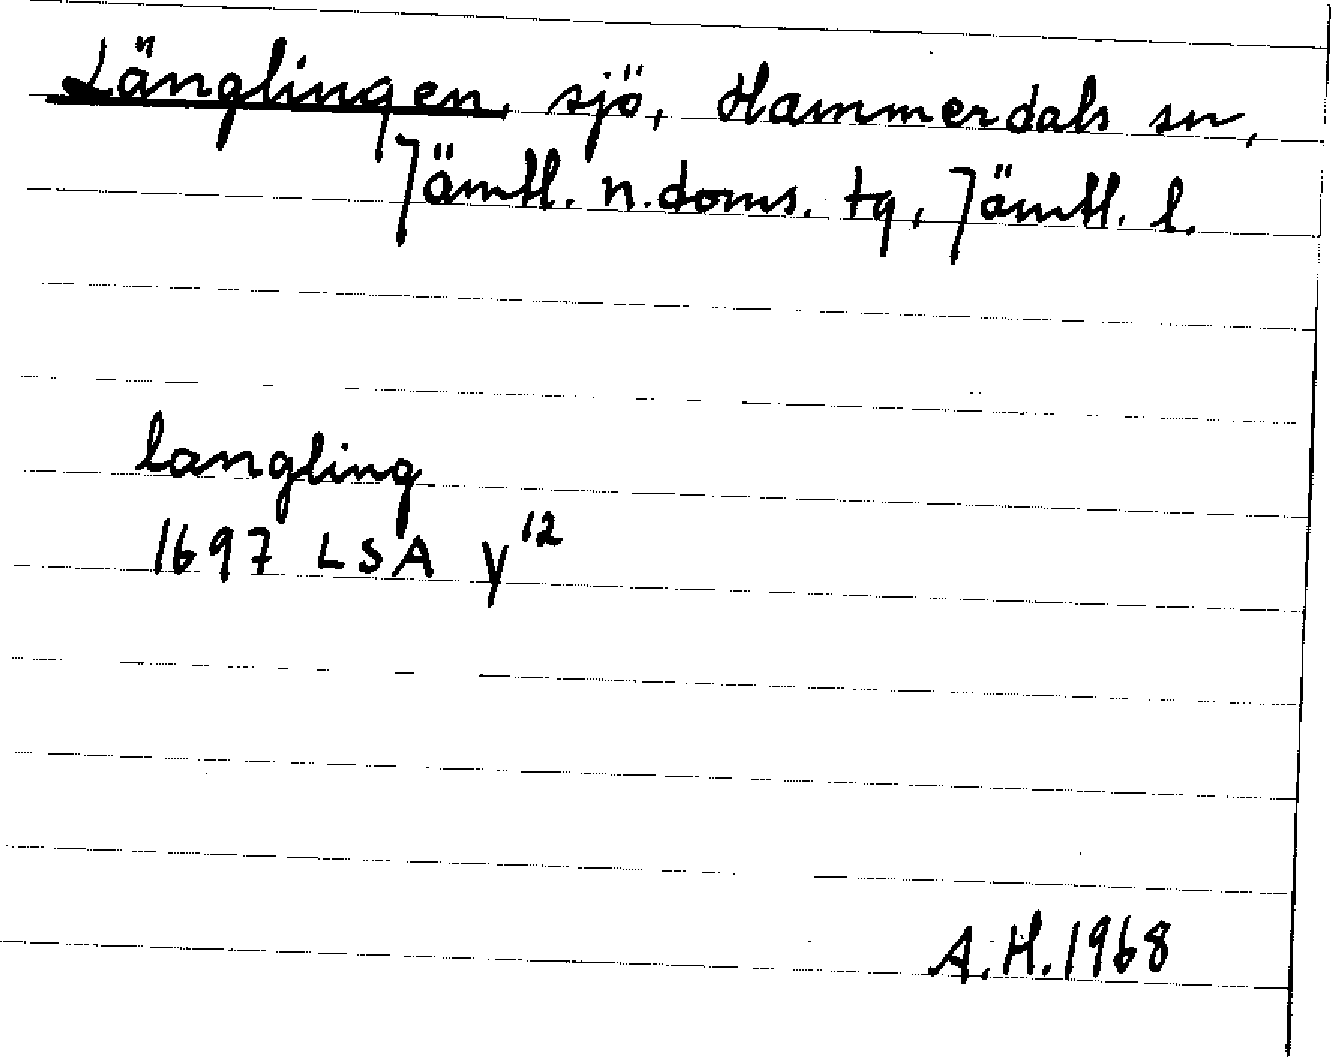 Länglingen, sjö, Hammerdals sn,
Jämtl. n. doms. tg, Jämtl. l.
langling
1697 LSA y¹²
A.H. 1968